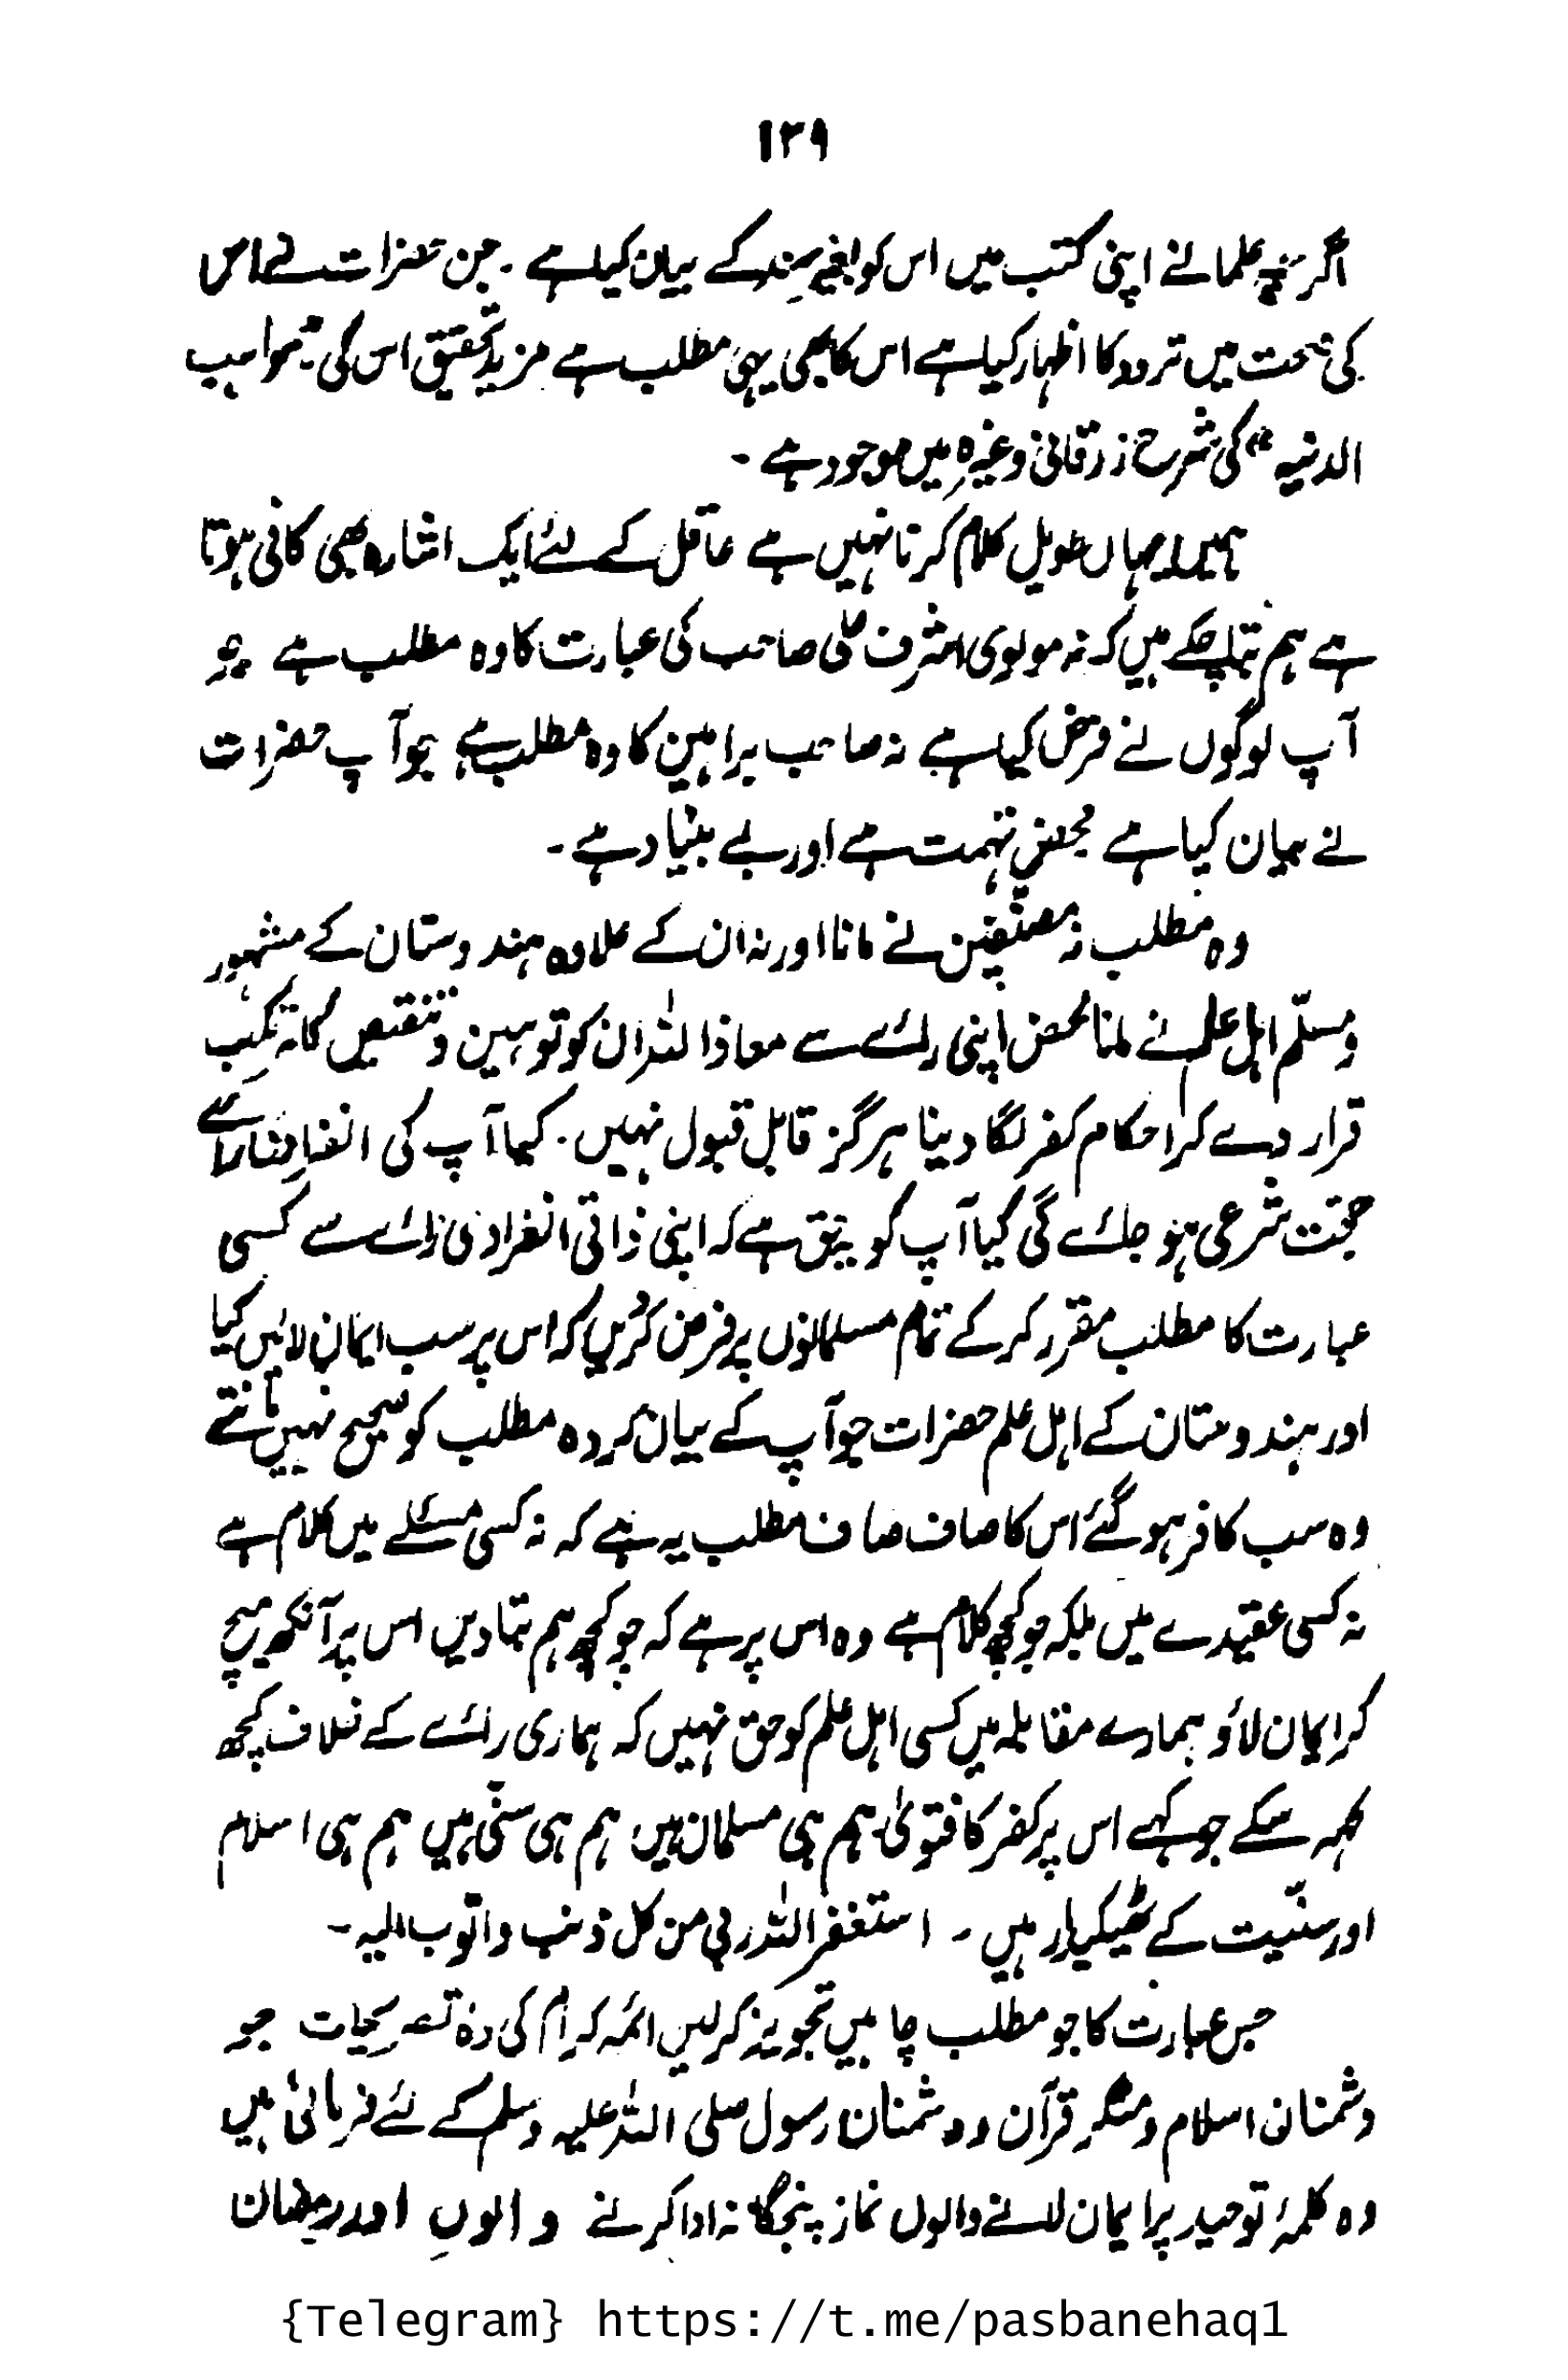 ۱۳۹
اگرچہ علما نے اپنی کتب میں اس کو بغیر سند کے بیان کیا ہے ۔ جن حضرات نے اس
کی صحت میں تردد کا اظہار کیا ہے اس کا بھی یہی مطلب ہے مزید تحقیق اس کی ”مواہب
الدنیہ“ کی شرح زرقانی وغیرہ میں موجود ہے ۔
ہمیں یہاں طویل کلام کرنا نہیں ہے عاقل کے لئے ایک اشارہ بھی کافی ہوتا
ہے ہم بتا چکے ہیں کہ نہ مولوی اشرف علی صاحب کی عبارت کا وہ مطلب ہے جو
آپ لوگوں نے فرض کیا ہے نہ صاحب براہین کا وہ مطلب ہے جو آپ حضرات
نے بیان کیا ہے محض تہمت ہے اور بے بنیاد ہے ۔
وہ مطلب نہ مصنّفین نے مانا اور نہ ان کے علاوہ ہندوستان کے مشہور
و مسلّم اہل علم نے مانا محض اپنی رائے سے معاذ اللہ ان کو توہین و تنقیص کا مرتکب
قرار دے کر احکام کفر لگا دینا ہرگز قابل قبول نہیں ۔ کیا آپ کی انفرادی رائے
حجّت شرعی ہو جائے گی کیا آپ کو یہ حق ہے کہ اپنی ذاتی انفرادی رائے سے کسی
عبارت کا مطلب مقرر کر کے تمام مسلمانوں پر فرض کریں کہ اس پر سب ایمان لائیں کیا
اور ہندوستان کے اہل علم حضرات جو آپ کے بیان کردہ مطلب کو صحیح نہیں مانتے
وہ سب کافر ہو گئے اس کا صاف صاف مطلب یہ ہے کہ نہ کسی مسئلے میں کلام ہے
نہ کسی عقیدے میں بلکہ جو کچھ کلام ہے وہ اس پر ہے کہ جو کچھ ہم بتا دیں اس پر آنکھ میچ
کر ایمان لاؤ ہمارے مقابلہ میں کسی اہل علم کو حق نہیں کہ ہماری رائے کے خلاف کچھ
کہہ سکے جو کہے اس پر کفر کا فتویٰ ہم ہی مسلمان ہیں ہم ہی سنّی ہیں ہم ہی اسلام
اور سنّیت کے ٹھیکیدار ہیں ۔ استغفر اللہ ربی من کل ذنب واتوب الیہ ۔
جس عبارت کا جو مطلب چاہیں تجویز کر لیں ائمہ کرام کی وہ تصریحات جو
دشمنان اسلام و منکر قرآن و دشمنان رسول صلی اللہ علیہ وسلم کے لئے فرمائی ہیں
وہ کلمۂ توحید پر ایمان لانے والوں نماز پنجگانہ ادا کرنے والوں اور رمضان
{Telegram} https://t.me/pasbanehaq1